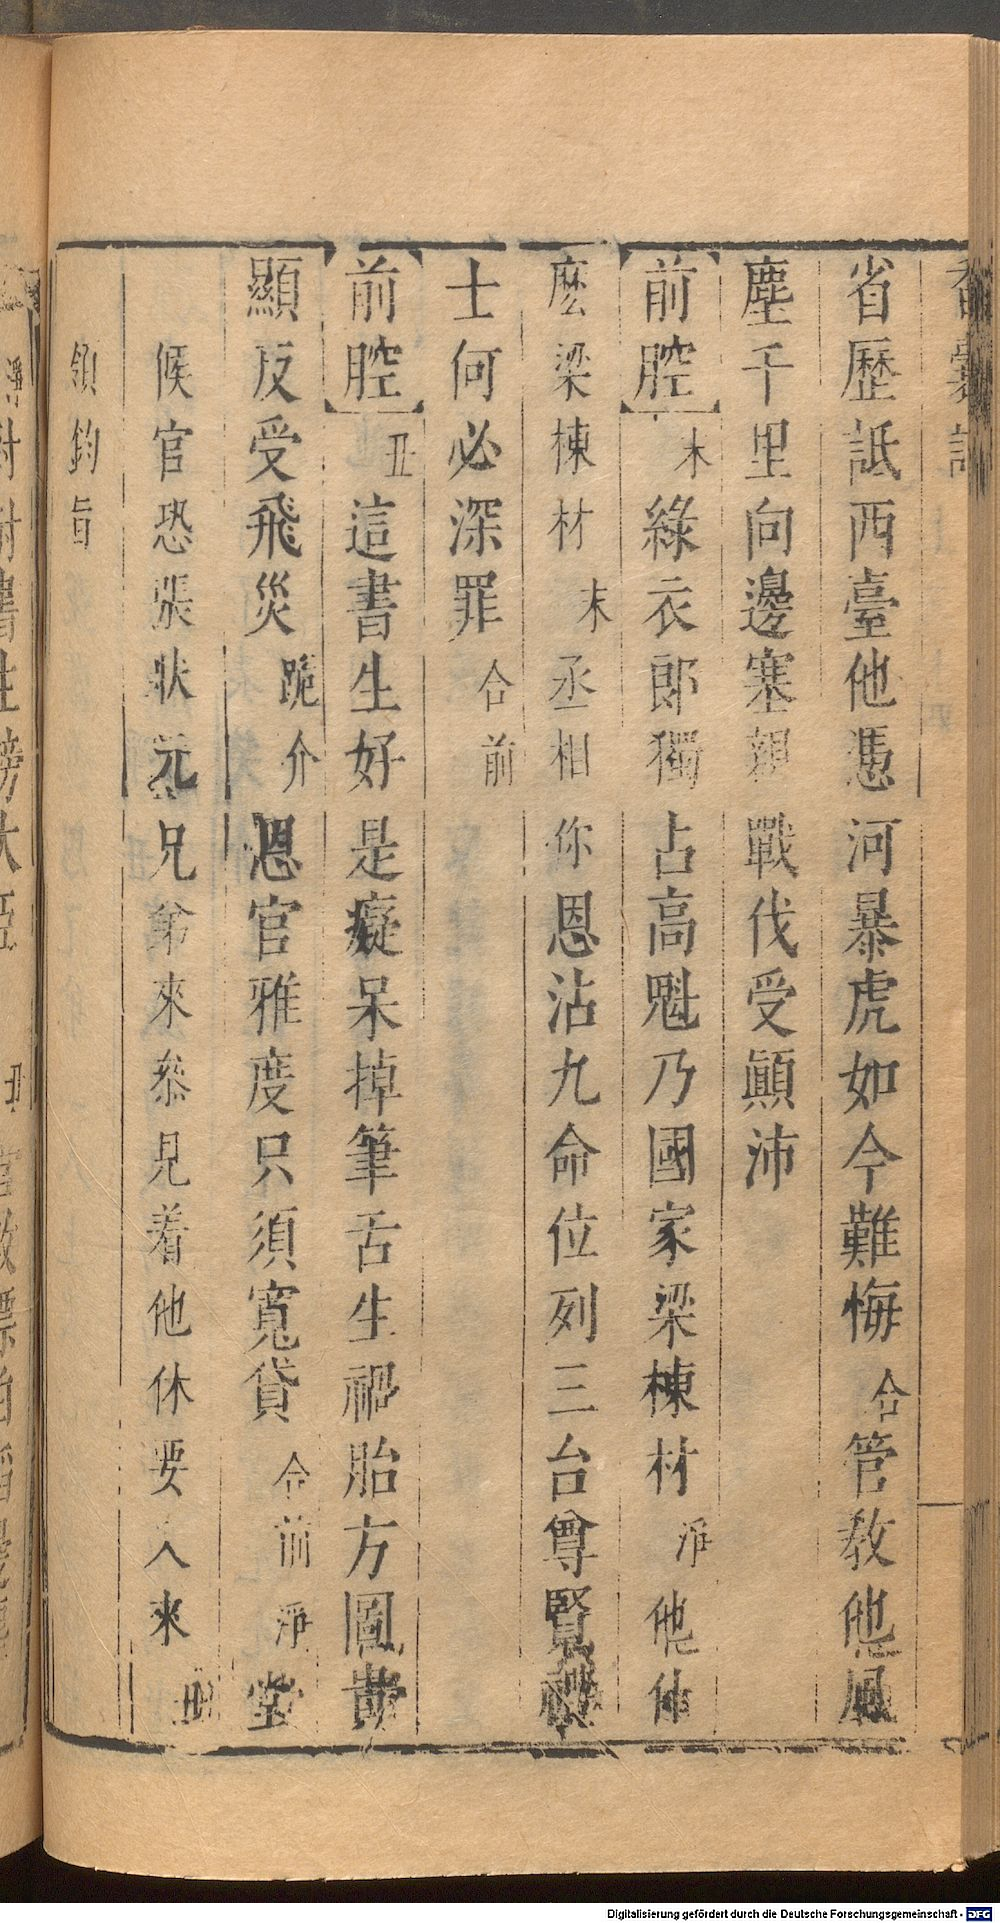 省歷詆西臺他憑河暴虎如今難悔合管教他風
塵千里向邊塞親戰伐受顚沛
前腔末綠衣郎獨占高魁乃國家梁棟材淨他作
麽梁棟材末丞相你恩沾九命位列三台尊賢禮
士何必深罪合前
前腔丑這書生好是癡呆掉筆舌生禍胎方圖貴
顯反受飛災跪介恩官雅度只須寬貸合前淨堂
候官恐張狀元兄弟來叅見着他休要入來丑
領鈞旨
Digitalisierung gefördert durch die Deutsche Forschungsgemeinschaft - DFG